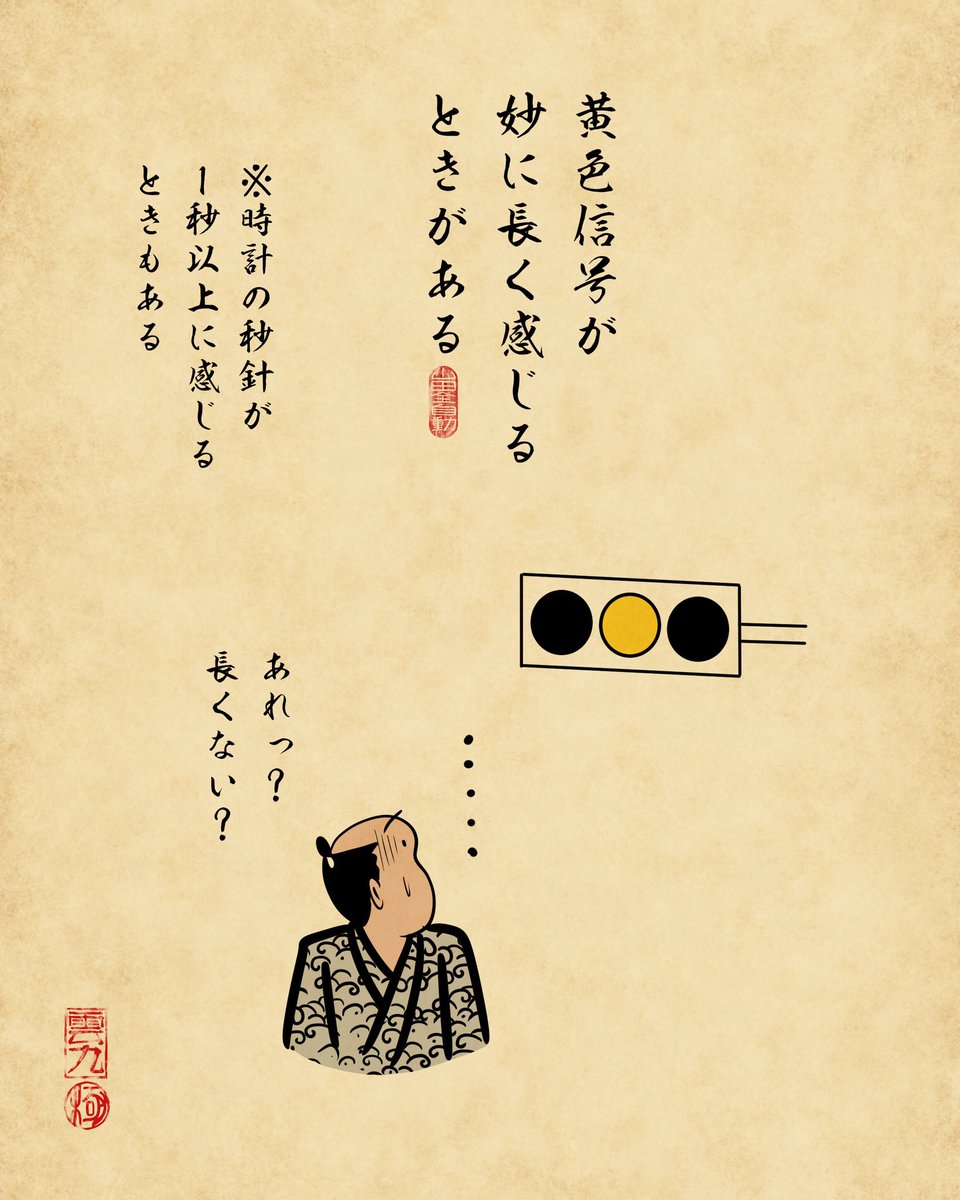 黄色信号が
妙に長く感じる
ときがある
※時計の秒針が
1秒以上に感じる
ときもある
あれっ?
長くない?
・・・・・